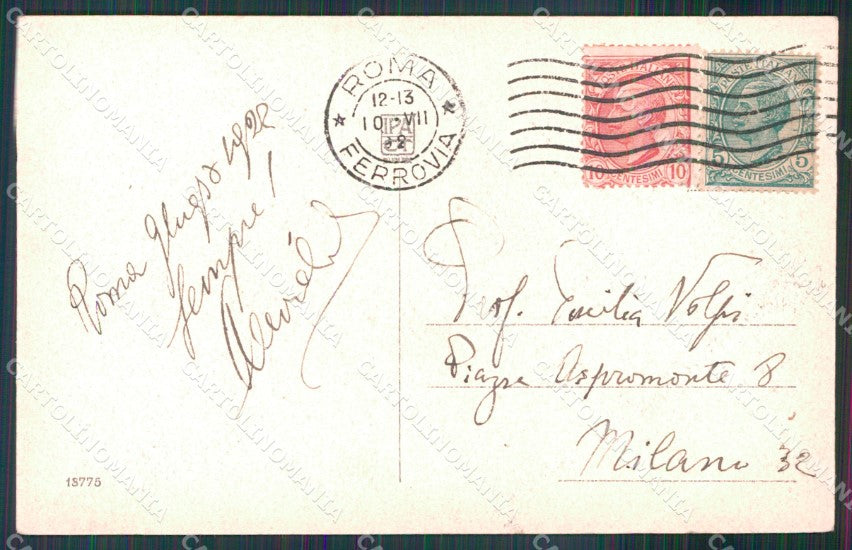 ROMA
12-13
10 · VII
22
FERROVIA
POSTE ITALIANE
10 CENTESIMI 10
POSTE ITALIANE
5 CENTESIMI 5
Roma 9 luglio 1922
Sempre!
Prof. Emilia Volpi
Piazza Aspromonte 8
Milano 32
13775
CARTOLINOMANIA